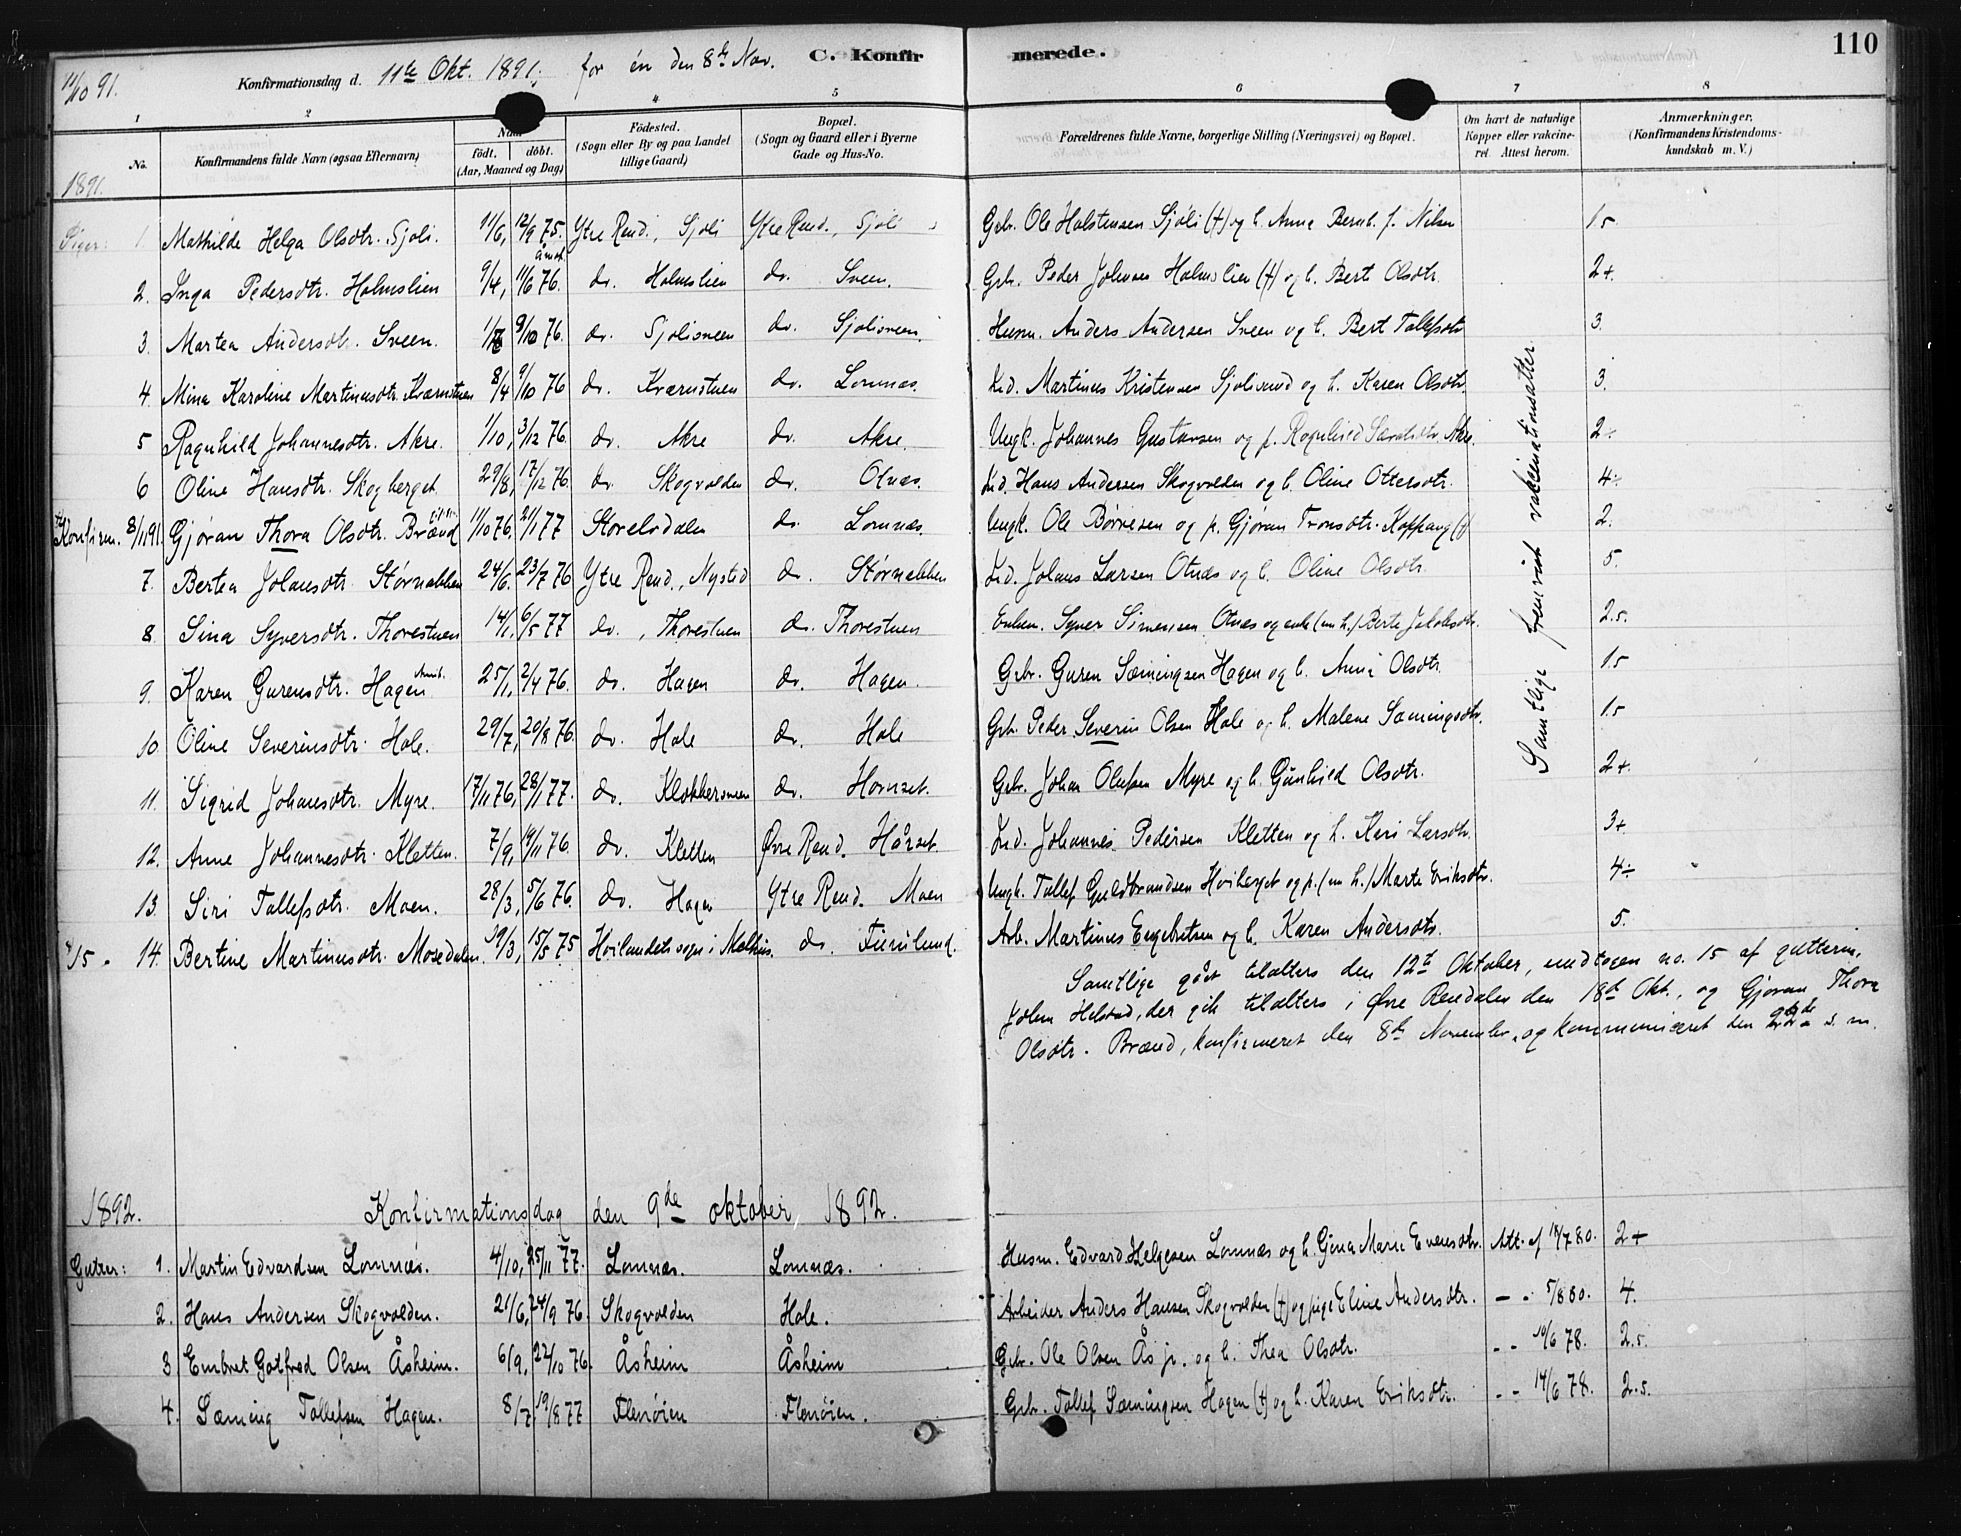 110
11/10 91. Konfirmationsdag d. 11te Okt. 1891; for én den 8de Nov. C. Konfirmerede.
1 2 4 5 6 7 8
No. Konfirmandens fulde Navn (ogsaa Efternavn) født. døbt. (Aar, Maaned og Dag) Fødested. (Sogn eller By og paa Landet tillige Gaard) Bopæl. (Sogn og Gaard eller i Byerne Gade og Hus-No. Forældrenes fulde Navne, borgerlige Stilling (Næringsvei) og Bopæl. Om havt de naturlige Kopper eller vakcineret. Attest herom. Anmærkninger. (Konfirmandens Kristendomskundskab m. V.)
1891.
Piger: 1. Mathilde Helga Olsdtr. Sjøli. 11/6, 12/9 75. Ytre Rend., Sjøli Ytre Rend., Sjøli Gbr. Ole Halstensen Sjøli (†) og h. Anna Bernh. f. Nilsen 1.5
2. Inga Pedersdtr. Holmslien 9/4, 11/6 76. do. Holmslien do. Sveen. Gbr. Peder Johnsen Holmslien (†) og h. Berit Olsdtr. 2+.
3. Martea Andersdtr. Sveen. 8/10 76. do. Sjølisveen do. Sjølisveen Husm. Anders Andersen Sveen og h. Berit Tollefsdtr. 3.
4. Mina Karoline Martinusdtr. Kværnstuen 8/4 9/10 76 do. Kværnstuen do. Lomnæs. Ind. Martinus Kristensen Sjølisand og h. Karen Olsdtr. 3.
5 Ragnhild Johannesdtr. Akre. 1/10, 3/12 76. do. Akre do. Akre. Ungk. Johannes Gustavsen og p. Ragnhild Akre. 2÷
6 Oline Hansdtr. Skogberget 29/8, 17/12 76. do. Skogvolden do. Otnæs. Ind. Hans Andersen Skogvolden og h. Oline Ottersdtr. 4÷
Konfirm. 8/11 91. Gjøran Thora Olsdtr. Brænd 11/10 76. 21/1 77 Storelvdalen do. Lomnæs. Ungk. Ole Børresen og p. Gjøran Tronsdtr. Koppang (†) 2.
7. Bertea Johansdtr. Størnabben 24/6. 23/7 76 Ytre Rend., Nysted do. Størnabben Ind. Johans Larsen Otnæs og h. Oline Olsdtr. 5.
8. Sina Syversdtr. Thorestuen 14/1, 6/5 77 do., Thorestuen do. Thorestuen Enkem. Syver Simensen Otnæs og enke (nu h.) Berte Jakobsdtr. 2.5.
9. Karen Gurensdtr. Hagen 25/1, 2/4 76. do. Hagen do. Hagen. Gbr. Guren Sæmingsen Hagen og h. Anne Olsdtr. 1.5
10. Oline Severinsdtr. Hole. 29/7, 20/8 76. do. Hole do. Hole Gbr. Peder Severin Olsen Hole og h. Malene Sæmingsdtr. 1.5
11. Sigrid Johansdtr. Myre. 17/11 76, 28/1 77. do. Klokkersveen do. Hornset. Gbr. Johan Olufsen Myre og h. Gunhild Olsdtr. 2+.
12. Anne Johannesdtr. Kletten. 7/9, 19/11 76. do. Kletten Øvre Rend. Hårset. Ind. Johannes Pedersen Kletten og h. Kari Larsdtr. 3+
13. Siri Tollefsdtr. Moen. 28/3, 5/6 76. do. Hagen Ytre Rend. Moen Ungk. Tollef Guldbrandsen Hviberget og p. (nu h.) Marte Eriksdtr. 4÷
14. Bertine Martinusdtr. Mosedalen. 15/5 75 Hvilandets sogn i Melhus. do. Fiskulund. Arb. Martinus Engebretsen og h. Karen Andersdtr. 5.
Samtlige fremvist vaccinationsattester.
Samtlige gået tilalters den 12te Oktober, undtagen no. 15 af gutterne,
Johan Helstad, der gik tilalters i Øvre Rendalen den 18de Okt., og Gjøran Thora
Olsdtr. Brænd, konfirmeret den 8de November, og kommuniceret den s. m.
1892. Konfirmationsdag den 9de oktober, 1892.
Gutter: 1. Martin Edvardsen Lomnæs. 4/10, 25/11 77. Lomnæs. Lomnæs. Husm. Edvard Helgesen Lomnæs og h. Gina Marie Evensdtr. Att. af 18/7 80. 2+
2. Hans Andersen Skogvolden. 21/6, 24/9 76. Skogvolden Hole. Arbeider Anders Hansen Skogvolden (†) og pige Eline Andersdtr. – " 5/8 80. 4.
3. Embret Gotfred Olsen Åsheim. 6/9, 22/10 76. Åsheim Åsheim Gbr. Ole Olsen Ås jr. og h. Thea Olsdtr. " " 10/6 78. 2.5.
4. Sæming Tollefsen Hagen. 8/7 19/8 77 Flenøien Flenøien. Gbr. Tollef Sæmingsen Hagen (†) og h. Karen Eriksdtr. " " 14/6 78. 2.5.